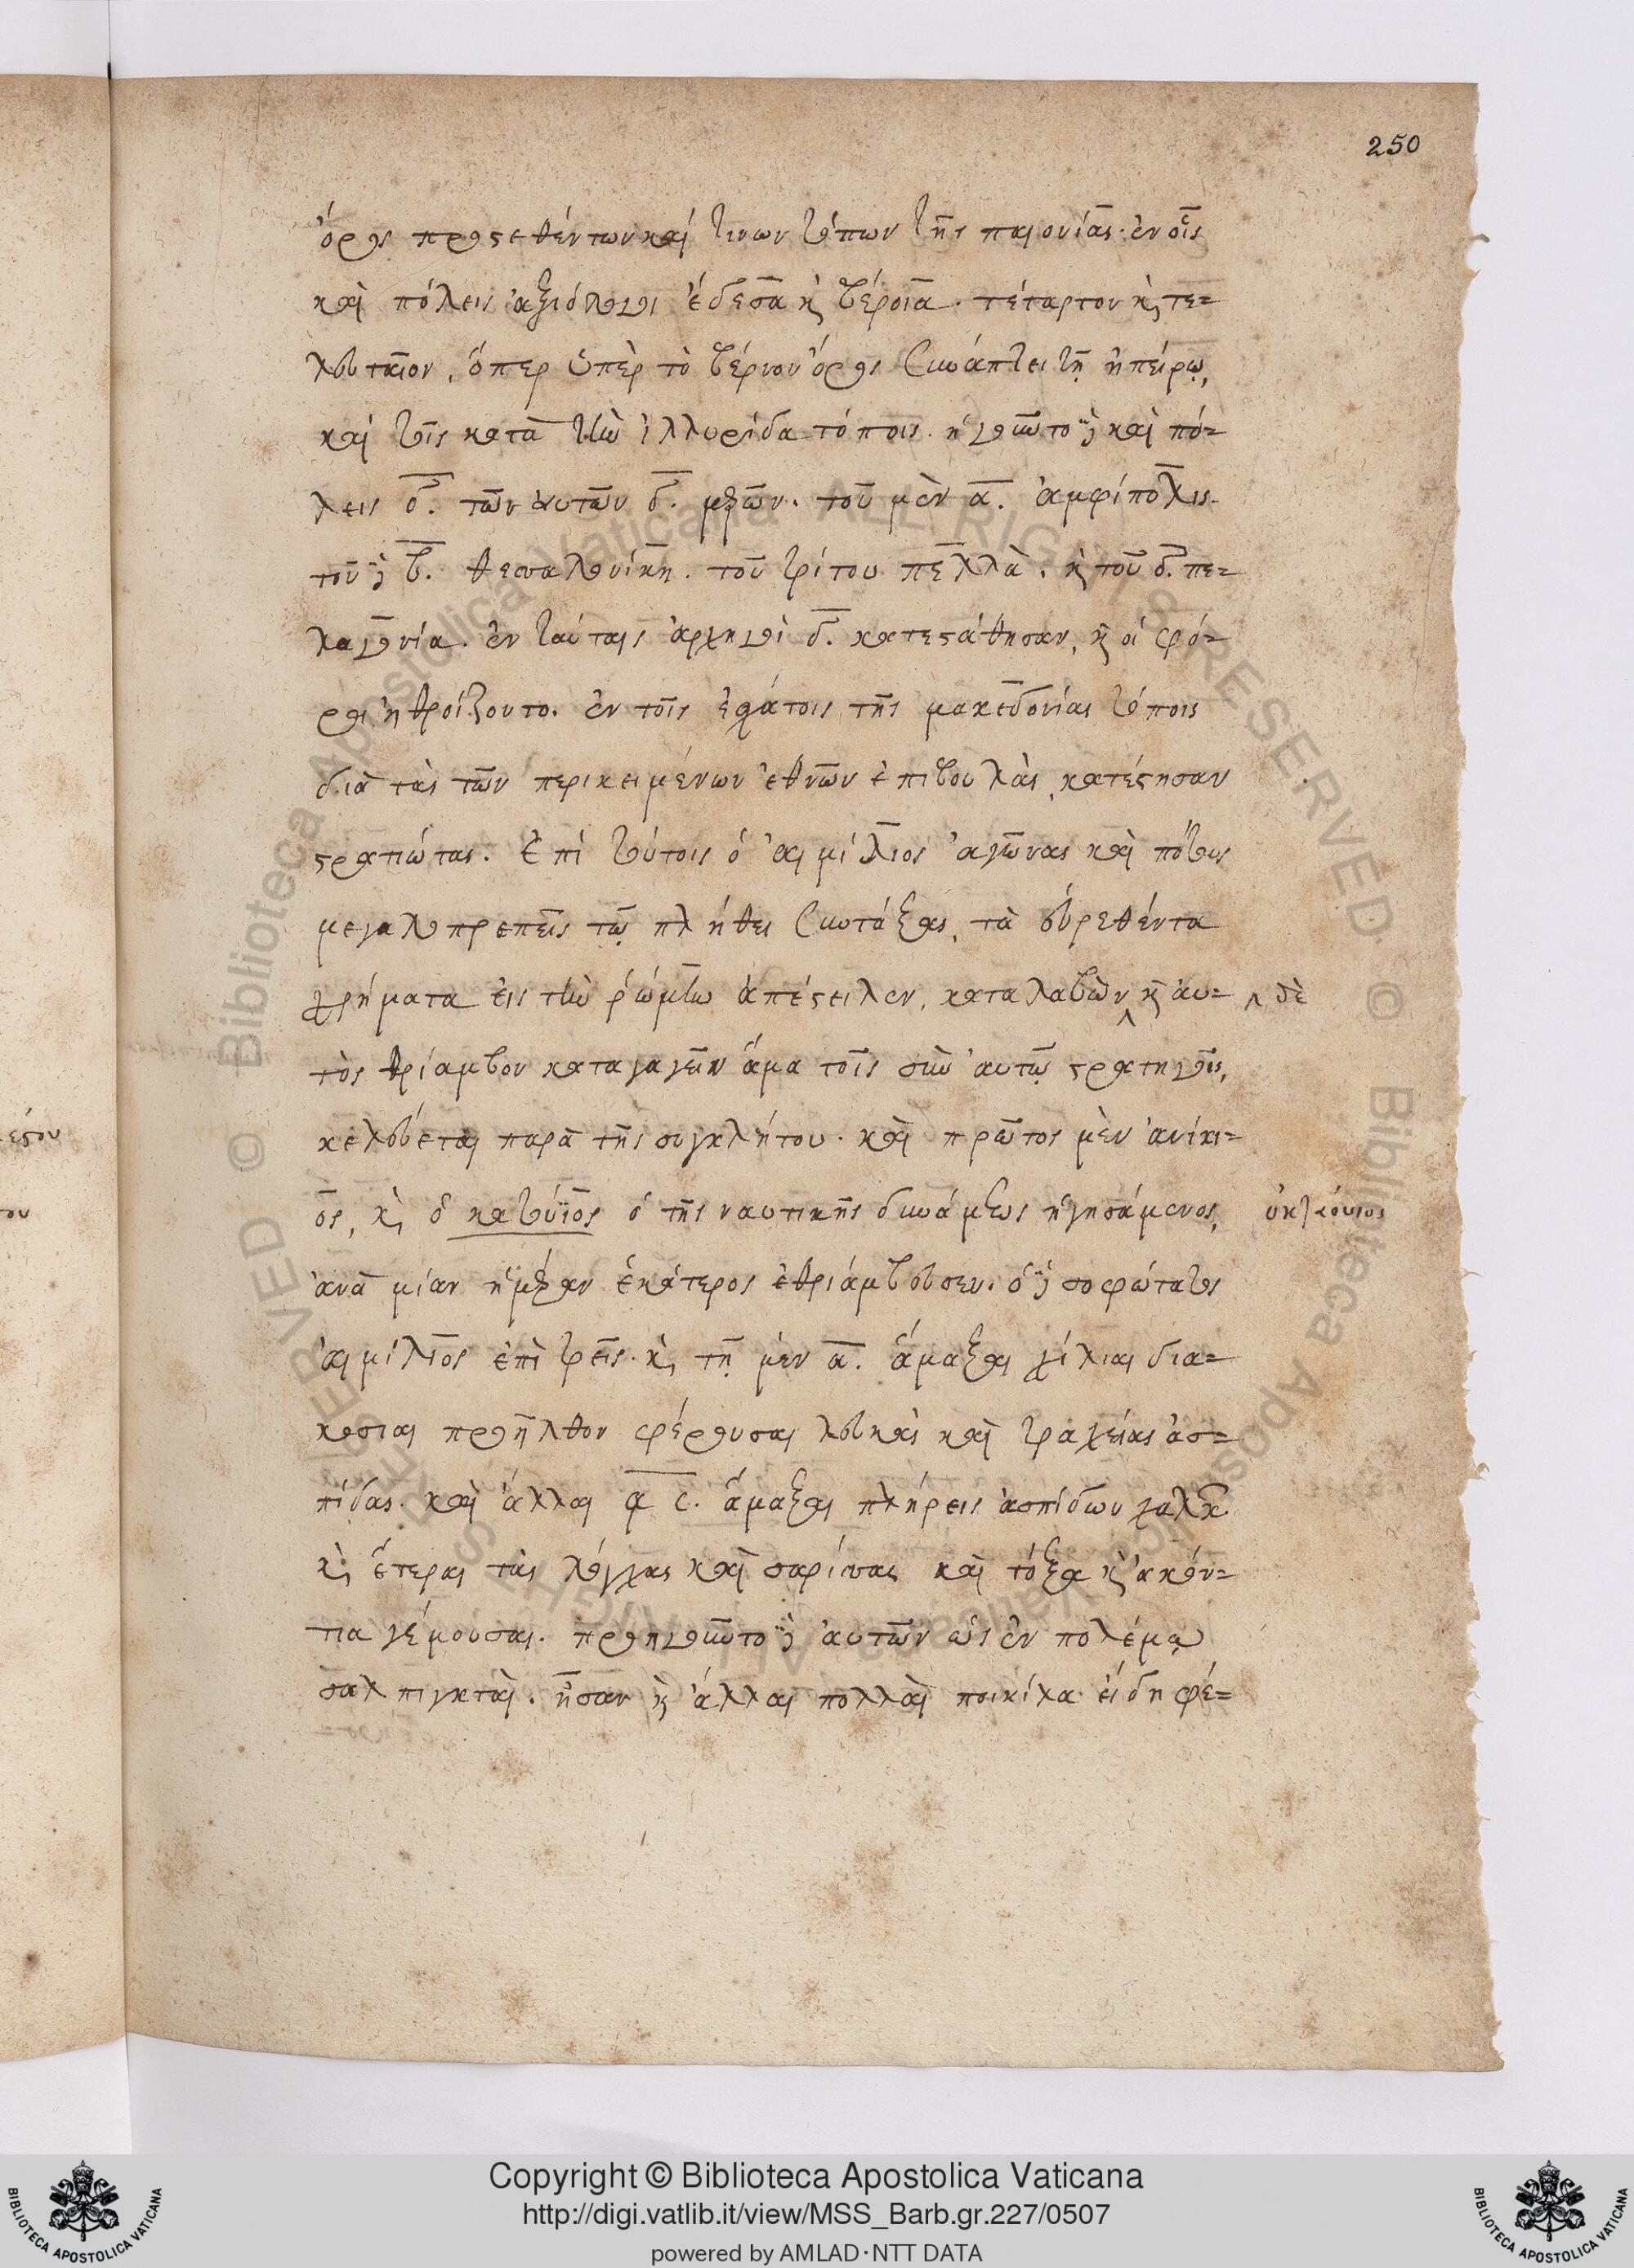 250
ὄρος προστεθέντων καί τινων τόπων τῆς παιονίας. ἐν οἷς
καὶ πόλεις ἀξιόλογοι ἔδεσα κ̀ βέροια. τέταρτον κ̀ τε=
λευταῖον, ὅπερ ὑπὲρ τὸ βέρνον ὄρος συνάπτει τῇ ἠπείρῳ,
καὶ τοῖς κατὰ τὴν ἰλλυρίδα τόποις. ἡγοῦντο δὲ καὶ πό=
λεις δ. τῶν αυτῶν δ. μερῶν. τοῦ μὲν α. ἀμφίπολις.
τοῦ δὲ β. θεσσαλονίκη. τοῦ τρίτου πελλὰ. κ̀ τοῦ δ. πε=
λαγονία. ἐν ταύταις ἀρχηγοὶ δ. κατεστάθησαν, κ̀ οἱ φό=
ροι ἠθροίζοντο. ἐν τοῖς ἐσχάτοις τῆς μακεδονίας τόποις
διὰ τὰς τῶν περικειμένων ἐθνῶν ἐπιβουλὰς, κατέστησαν
στρατιώτας. Ἐπὶ τούτοις ὁ αἰμίλιος ἀγῶνας καὶ πότους
μεγαλοπρεπεῖς τῷ πλήθει συντάξας, τὰ εὑρεθέντα
χρήματα εἰς τὴν ῥώμην ἀπέστειλεν, καταλαβὼν ‸ κ̀ αυ= ‸ δὲ
τὸς θρίαμβον καταγαγεῖν ἅμα τοῖς σὺν αὐτῷ στρατηγοῖς,
κελεύεται παρὰ τῆς συγκλήτου. καὶ πρῶτος μὲν ἀνίκι=
ος, κ̀ ὁ κατύϊος ὁ τῆς ναυτικῆς δυνάμεως ἡγησάμενος, ὀκταόυιος
ἀνὰ μίαν ἡμέραν ἑκάτερος ἐθριάμβευσεν. ὁ δὲ σοφώτατος
αἰμίλιος ἐπὶ τρεῖς. κ̀ τῇ μὲν α. ἅμαξαι χίλιαι δια=
κοσιαι προῆλθον φέρουσαι λευκὰς καὶ τραχείας ἀσ=
πίδας. καὶ ἄλλαι α ς. ἅμαξαι πλήρεις ἀσπίδων χαλκῶν
κ̀ ἕτεραι τὰς λόγχας καὶ σαρίσσας καὶ τόξα κ̀ ἀκόν=
τια γέμουσαι. προηγοῦντο δὲ αυτῶν ὡς ἐν πολέμῳ
σαλπιγκταὶ. ἦσαν κ̀ ἄλλαι πολλαὶ ποικίλα εἴδη φέ=
Copyright © Biblioteca Apostolica Vaticana
http://digi.vatlib.it/view/MSS_Barb.gr.227/0507
powered by AMLAD·NTT DATA